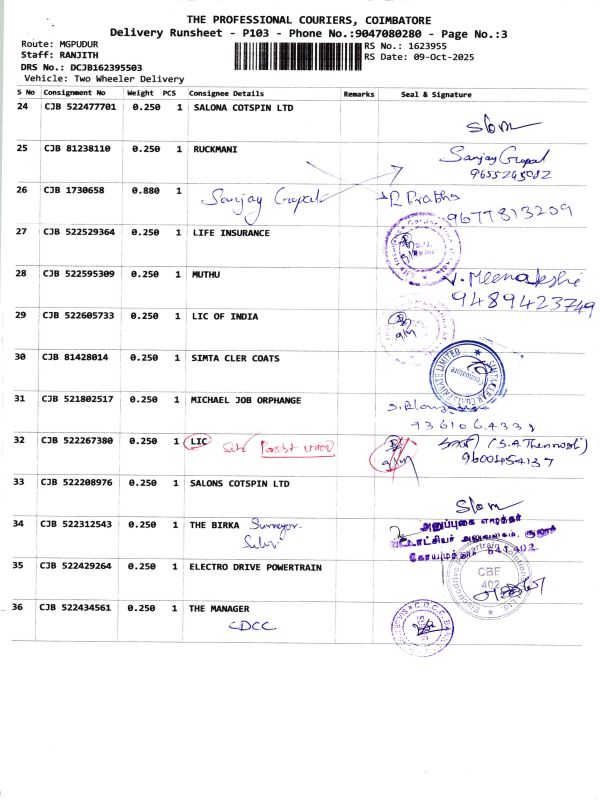 THE PROFESSIONAL COURIERS, COIMBATORE
Delivery Runsheet - P103 - Phone No.:9047080280 - Page No.:3
Route: MGPUDUR
RS No.: 1623955
Staff: RANJITH
RS Date: 09-Oct-2025
DRS No.: DCJB162395503
Vehicle: Two Wheeler Delivery
S No Consignment No Weight PCS Consignee Details Remarks Seal & Signature
24 CJB 522477701 0.250 1 SALONA COTSPIN LTD
25 CJB 81238110 0.250 1 RUCKMANI Sanjay Gopal
26 CJB 1730658 0.880 1 Sanjay Gopal R Prabha
9677813209
27 CJB 522529364 0.250 1 LIFE INSURANCE
28 CJB 522595309 0.250 1 MUTHU V. Meenakshi
9489423749
29 CJB 522605733 0.250 1 LIC OF INDIA
30 CJB 81428014 0.250 1 SIMTA CLER COATS
31 CJB 521802517 0.250 1 MICHAEL JOB ORPHANGE
32 CJB 522267380 0.250 1 LIC
33 CJB 522208976 0.250 1 SALONS COTSPIN LTD
34 CJB 522312543 0.250 1 THE BIRKA Surveyor
35 CJB 522429264 0.250 1 ELECTRO DRIVE POWERTRAIN
CBE
402
36 CJB 522434561 0.250 1 THE MANAGER
CDCC